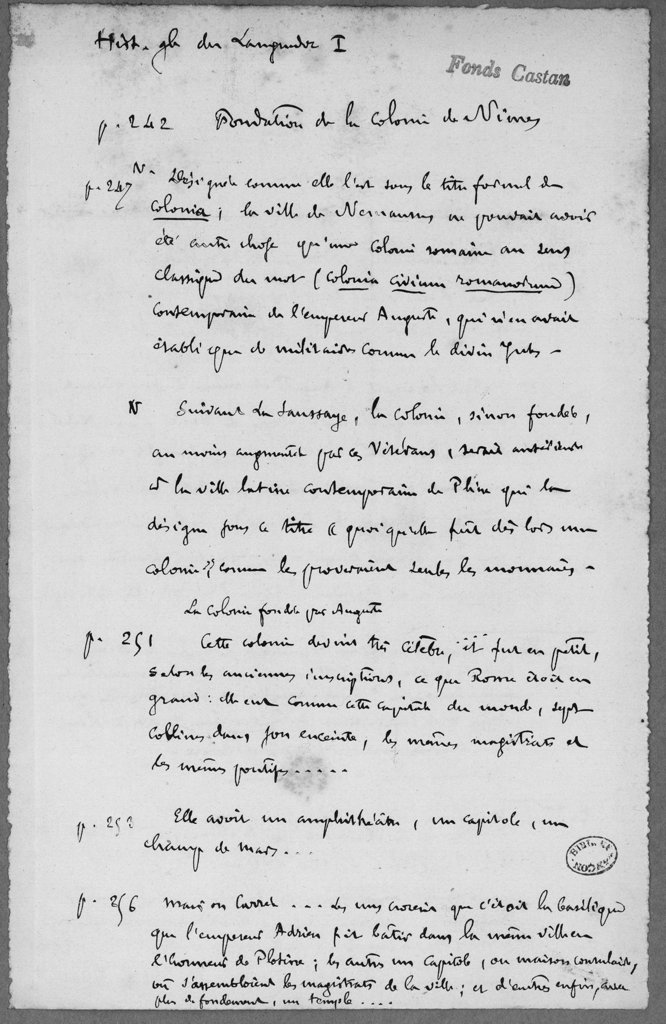 Hist. gle du Languedoc I
Fonds Castan
p. 242 Fondation de la colonie de Nimes
p. 247 N. Désignée comme elle l'est sous le titre formel de
colonia ; la ville de Nemausus ne pouvait avoir
été autre chose qu'une colonie romaine au sens
classique du mot (colonia civium romanorum)
contemporaine de l'empereur Auguste, qui n'en avait
établi que de militaires comme le divin Jules –
N Suivant La Saussaye, la colonie, sinon fondée,
au moins augmentée par ces Vétérans, serait antérieure
à la ville latine contemporaine de Pline qui la
désigne sous ce titre quoiqu'elle fût dès lors une
colonie, comme le prouveraient seules les monnaies –
La colonie fondée par Auguste
p. 251 Cette colonie devint très célèbre, et fut en petit,
selon les anciennes inscriptions, ce que Rome étoit en
grand : elle eut comme cette capitale du monde, sept
collines dans son enceinte, les mêmes magistrats et
les mêmes pontifes .....
p. 253 Elle avoit un amphithéâtre, un capitole, un
champ de mars ...
BIBL. BE SANÇON
p. 256 Maison Carrée ... Les uns croient que c'étoit la basilique
que l'empereur Adrien fit bâtir dans la même ville en
l'honneur de Plotine ; les autres un capitole, ou maison consulaire,
où s'assembloient les magistrats de la ville ; et d'autres enfin, avec
plus de fondement, un temple ....